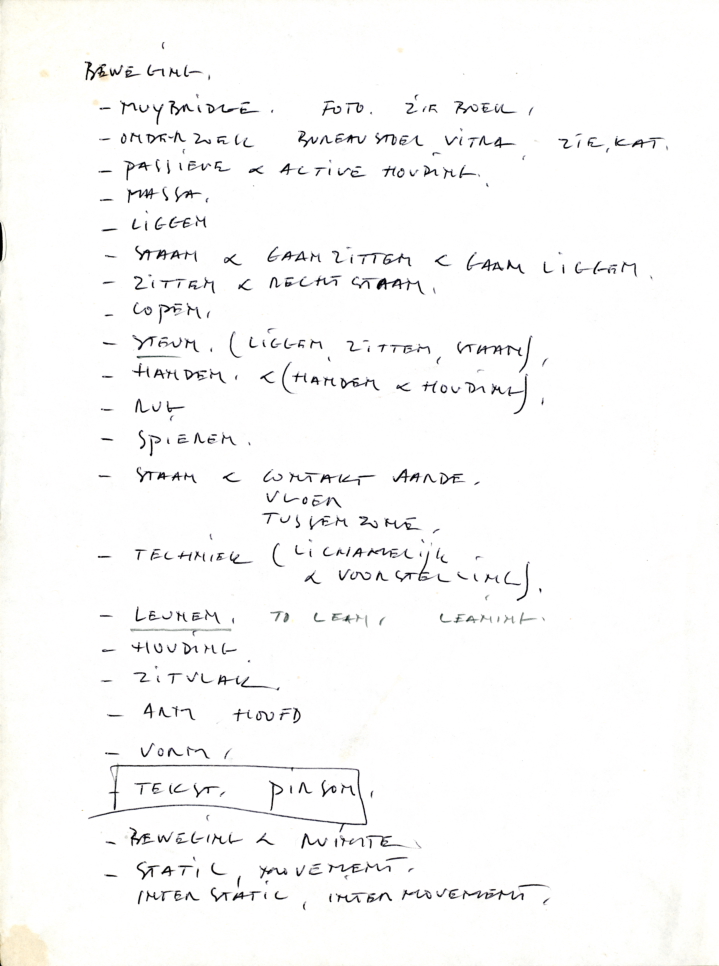 BEWEGING.
- MUYBRIDGE. FOTO. ZIE BOEK,
- ONDERZOEK BUREAUSTOEL VITRA, ZIE, KAT.
- PASSIEVE & ACTIVE HOUDING.
- MASSA.
- LIGGEN
- STAAN & GAAN ZITTEN & GAAN LIGGEN.
- ZITTEN & RECHT STAAN.
- LOPEN.
- STEUN. (LIGGEN, ZITTEN, STAAN),
- HANDEN. & (HANDEN & HOUDING).
- RUG
- SPIEREN.
- STAAN & CONTAKT AARDE.
VLOER
TUSSENZONE.
- TECHNIEK (LICHAMELIJK
& VOORSTELLING).
- LEUNEN. TO LEAN, LEANING.
- HOUDING
- ZITVLAK.
- ARM HOOFD
- VORM,
- TEKST. PINSON.
- BEWEGING & RUIMTE
- STATIC, MOVEMENT.
INTER STATIC, INTER MOVEMENT,